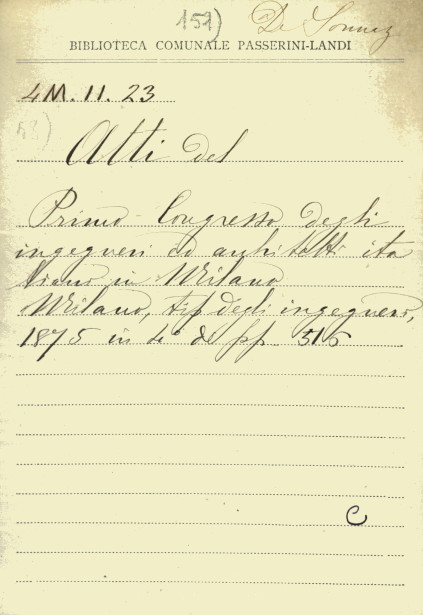 151) De
BIBLIOTECA COMUNALE PASSERINI-LANDI
4M.11.23
Atti del
Primo Congresso degli
ingegneri ed architetti ita
liani in Milano
Milano, tip degli ingegneri,
1875 in 4° di pp. 515
C